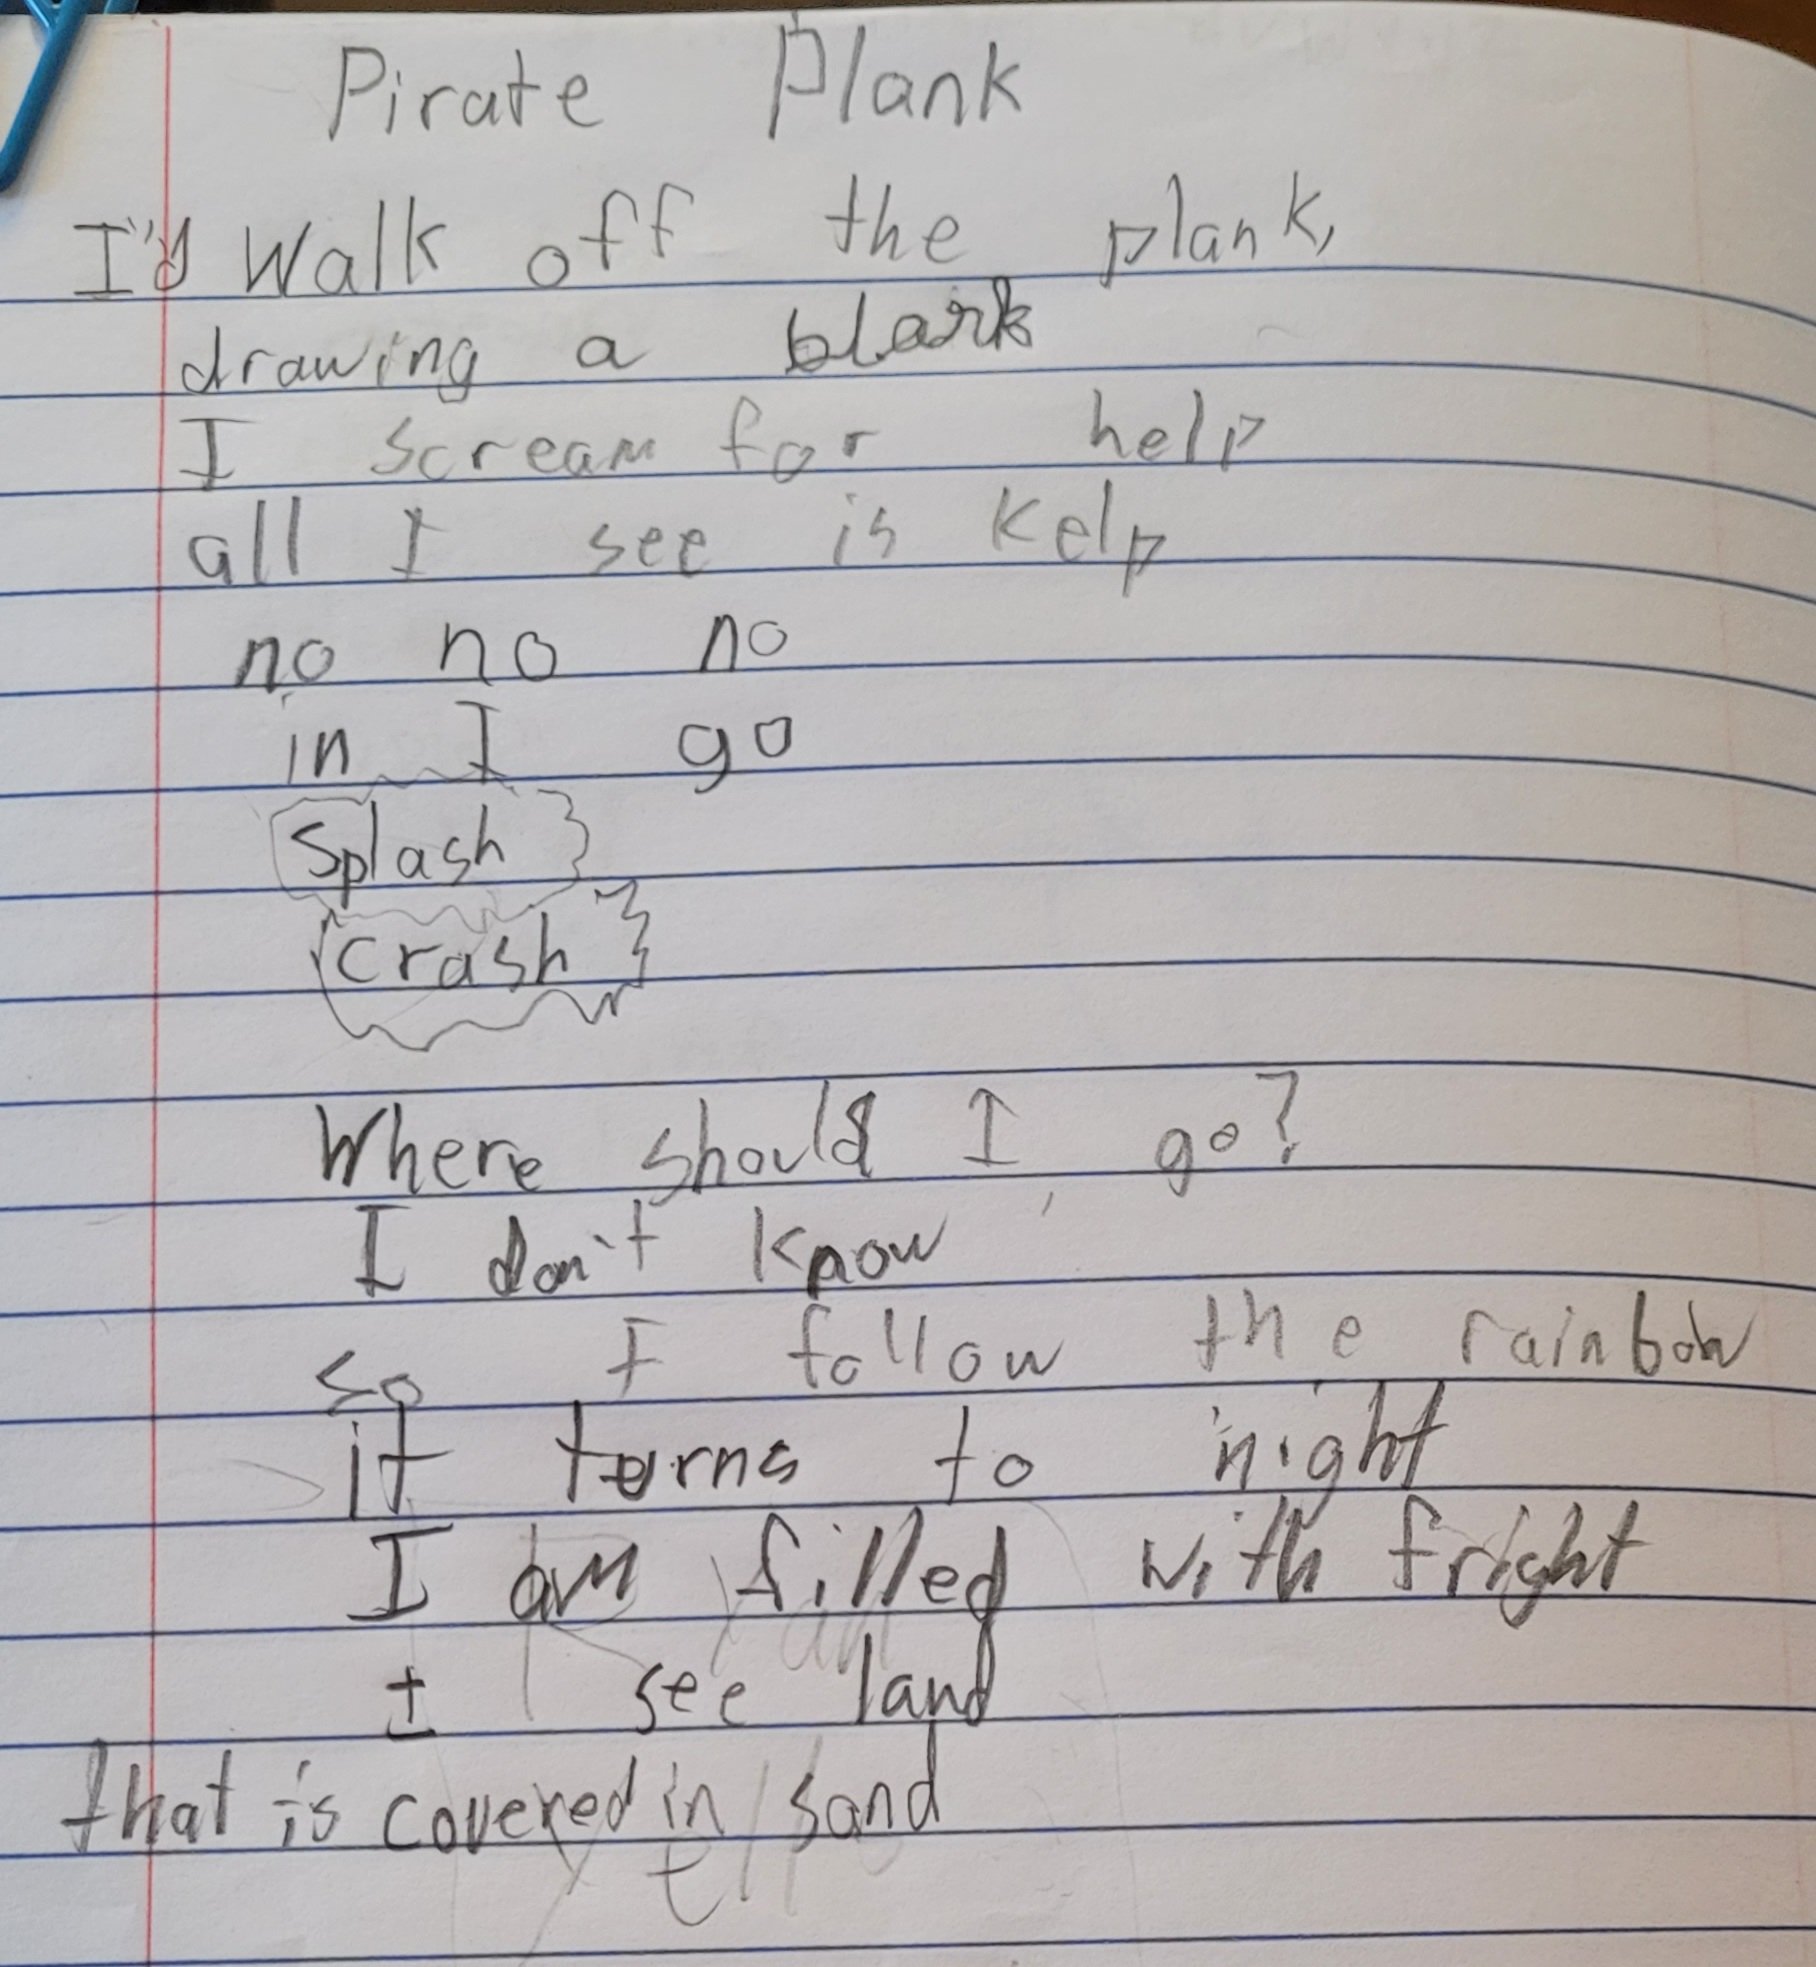 Pirate Plank
I'd Walk off the plank,
drawing a blank
I scream for help
all I see is kelp
no no no
in I go
Splash
Crash
Where should I go?
I don't know
so I follow the rainbow
it turns to night
I am filled with fright
I see land
that is covered in sand